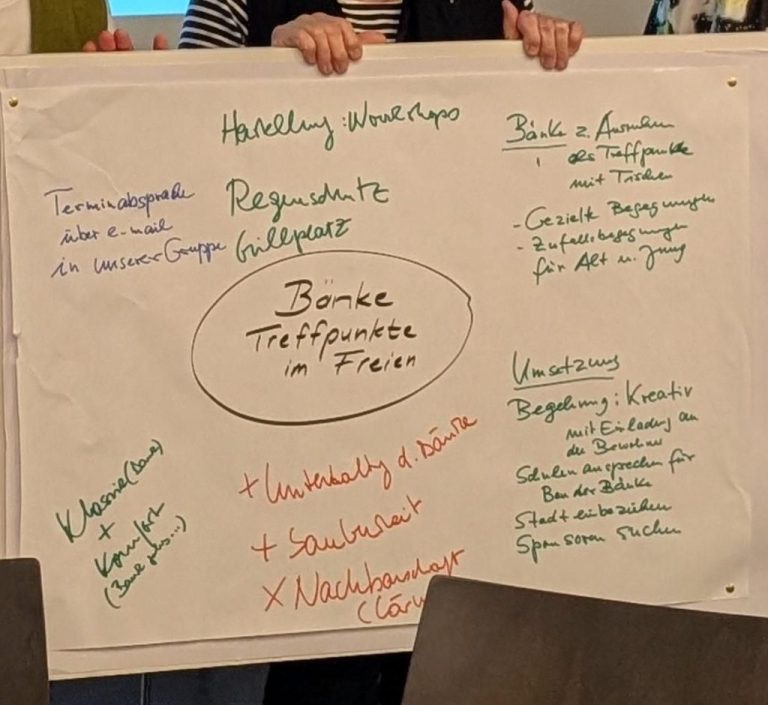 Workshops
Terminabsprache
über e-mail
in unserer Gruppe
Regenschutz
Grillplatz
Bänke
Treffpunkte
im Freien
Bänke z. Ausruhen
als Treffpunkte
mit Tischen
- Gezielte Begegnungen
- Zufallsbegegnungen
für Alt u. Jung
Umsetzung
Begehung: Kreativ
mit Einladung an
die Bewohner
Schulen ansprechen für
Bau der Bänke
Stadt einbeziehen
Sponsoren suchen
+ Unterhaltg d. Bänke
+ Sauberkeit
X Nachbarschaft
+
Komfort